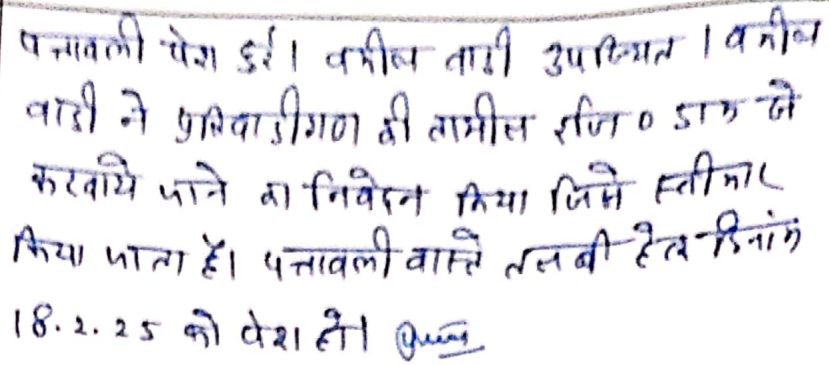 पत्रावली पेश हुई। वकील वादी उपस्थित । वकील
वादी ने प्रतिवादीगण की तामील रजि० डाक से
करवाये जाने का निवेदन किया जिसे स्वीकार
किया जाता है। पत्रावली वास्ते तलबी हेतु दिनांक
18.2.25 को पेश हो।